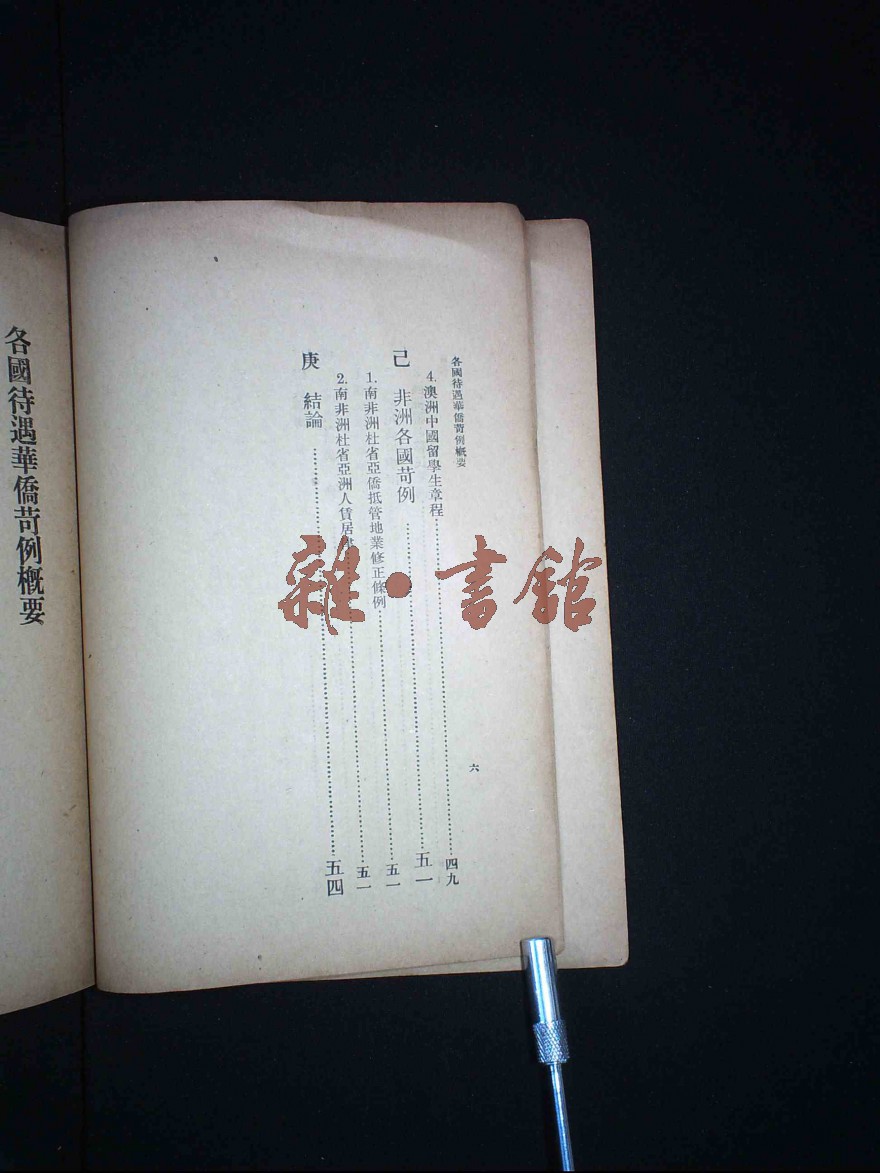 各國待遇華僑苛例概要
六
4.澳洲中國留學生章程……四九
己 非洲各國苛例……五一
1.南非洲杜省亞僑抵管地業修正條例……五一
2.南非洲杜省亞洲人賃居……五一
庚 結論……五四
各國待遇華僑苛例概要
雜·書館